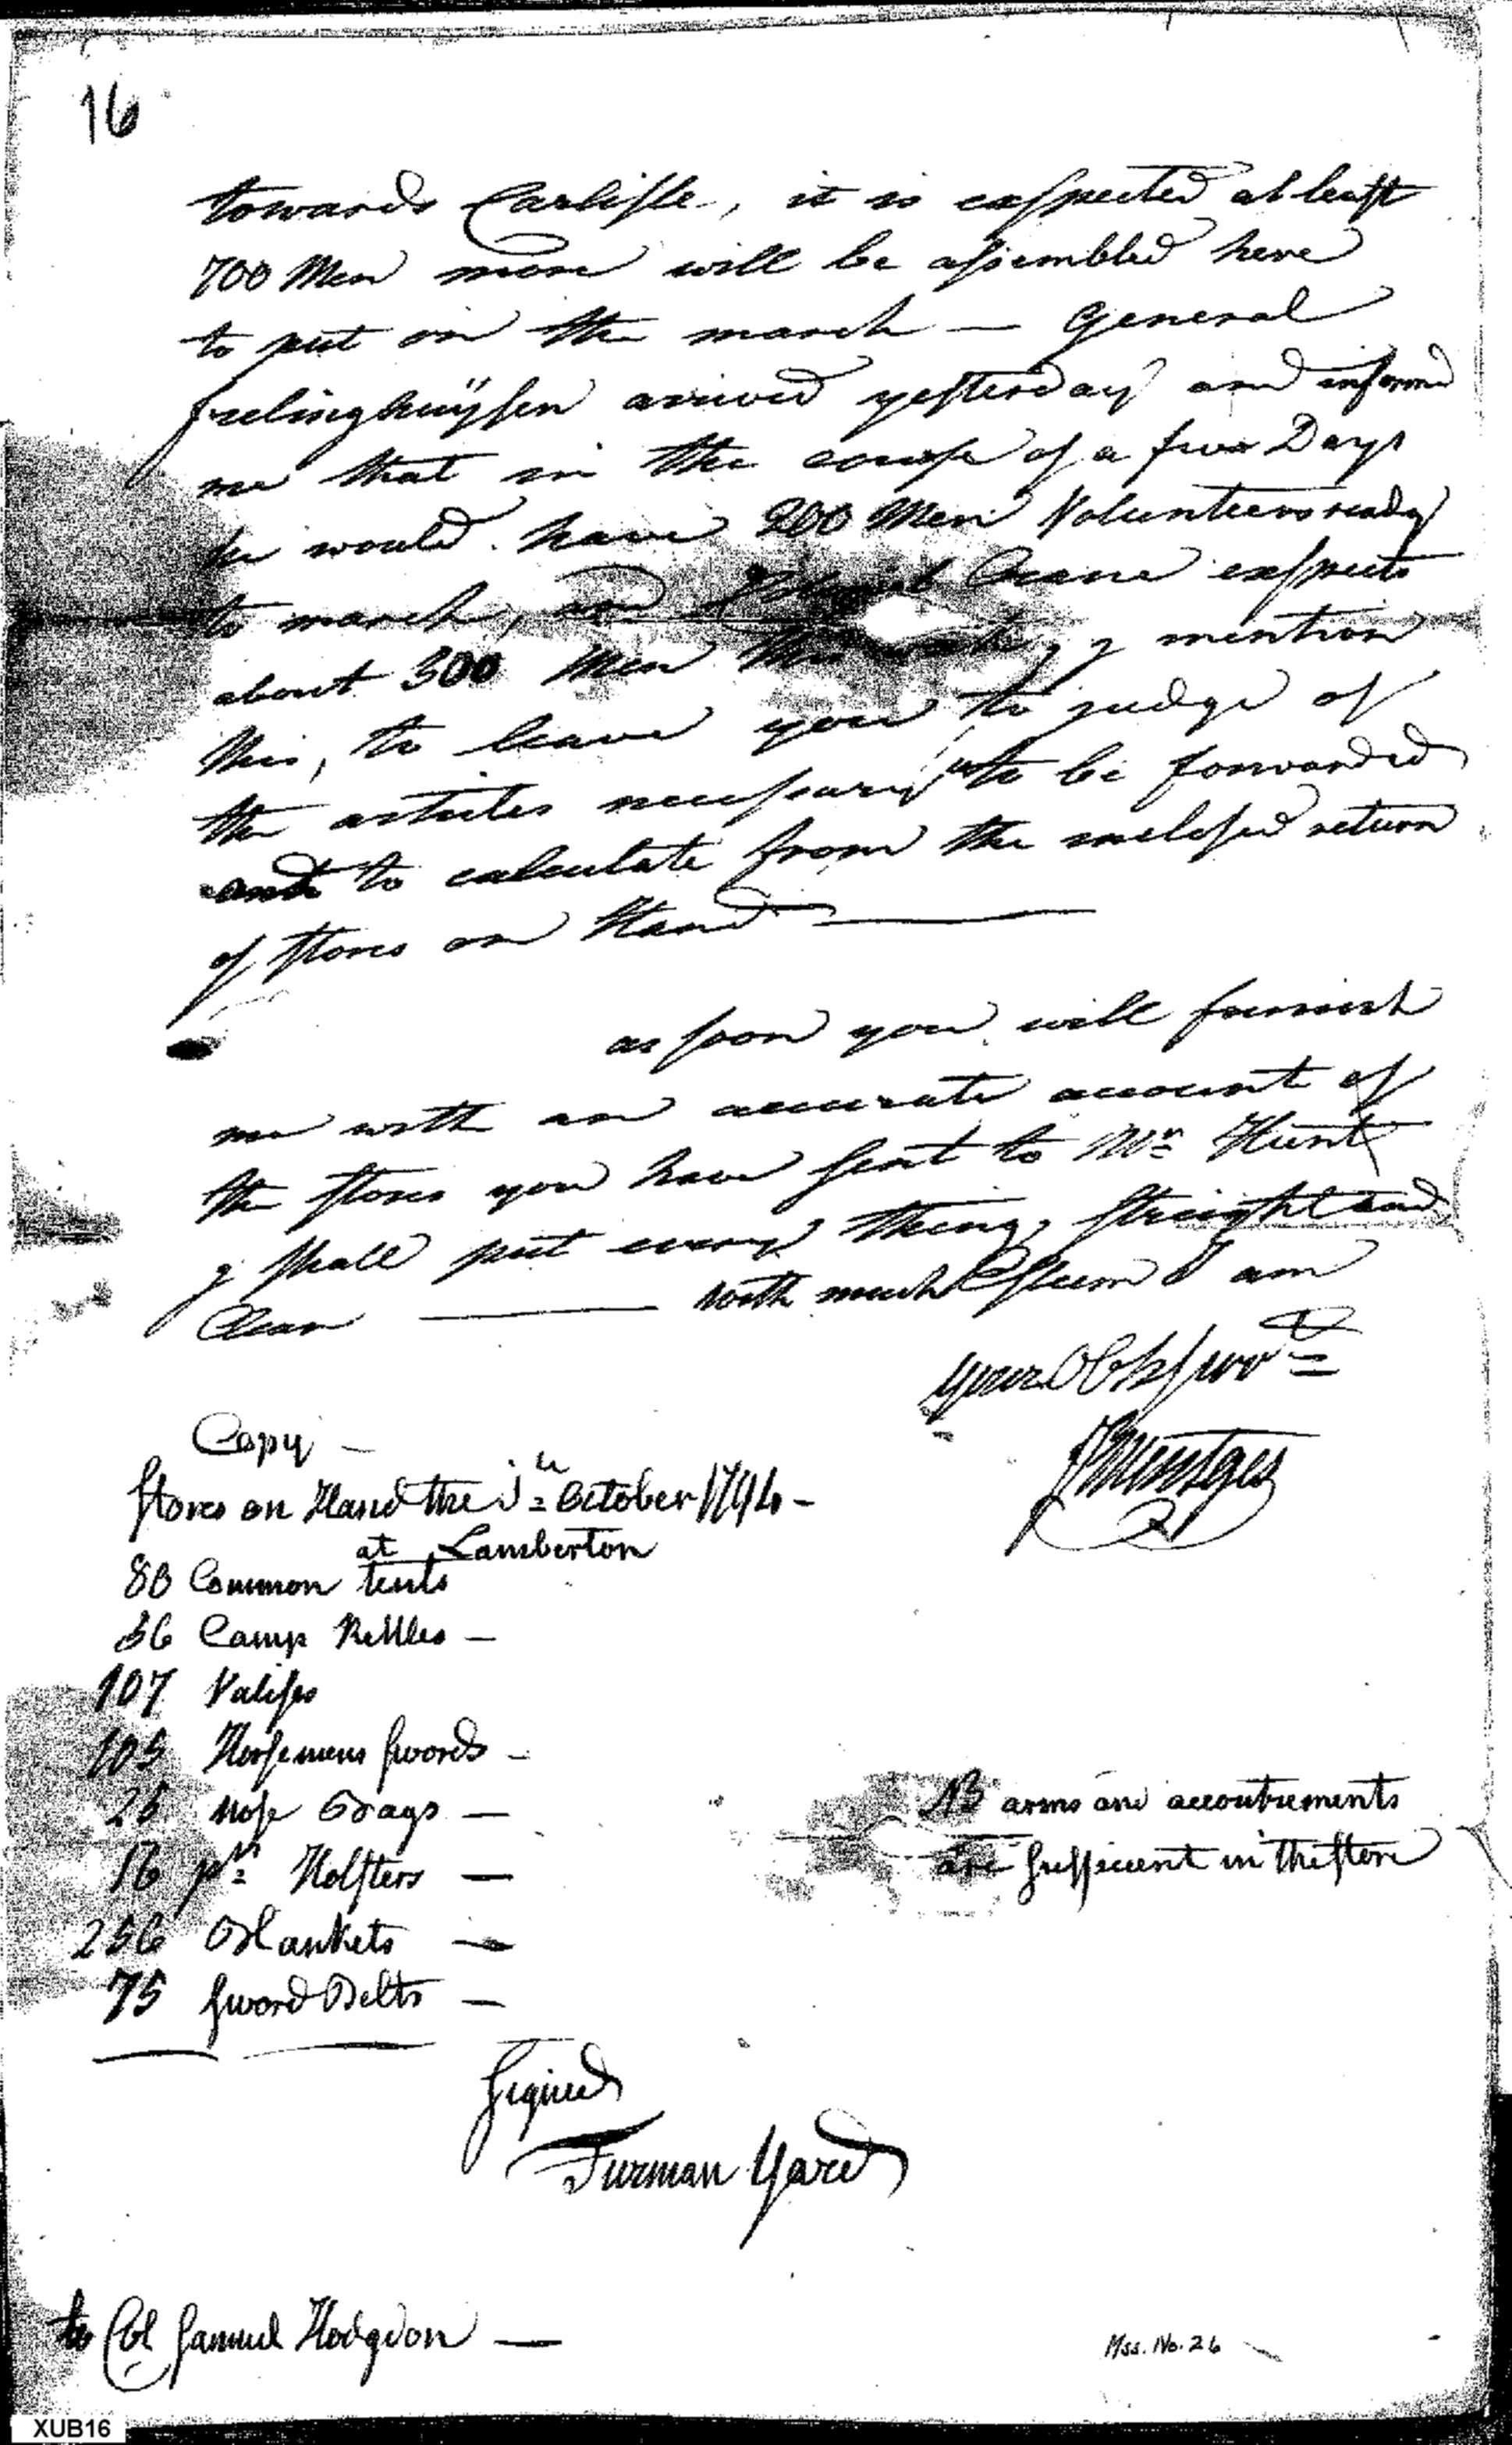 16
towards Carlisle, it is expected at least
700 Men more will be assembled here
to put on the march — General
frelinghuÿsen arived yesterday and informd
me that in the course of a few Days
he would have 200 Men Volunteers ready
to march, and Colonel Crane expects
about 300 Men this week, J mention
this, to leave you to judge of
the articles necessary to be forwarded
and to calculate from the inclosed return
of stores on Hand —
as soon you will furnish
me with an accurate account of
the stores you have sent to Mr Hunt
J shall put every thing, streight and
Clear — with much Esteem I am
your Ob
FMentges
Copy —
stores on Hand the October 1794 —
at Lamberton
80 Common tents
36 Camp Kettles —
107 Valises
105 Horsemens swords —
25 Nose Bags —
16 pr Holsters —
256 Blankets —
75 sword Belts —
NB arms and accoutrements
are sufficient in the store
signed
Furman Yard
to Col Samuel Hodgdon —
Mss. No. 26
XUB16